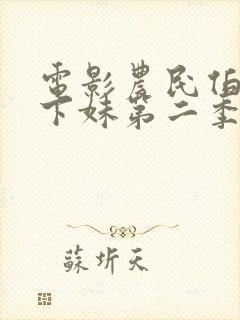 電影農民伯
下妹第二季
蘇圻天